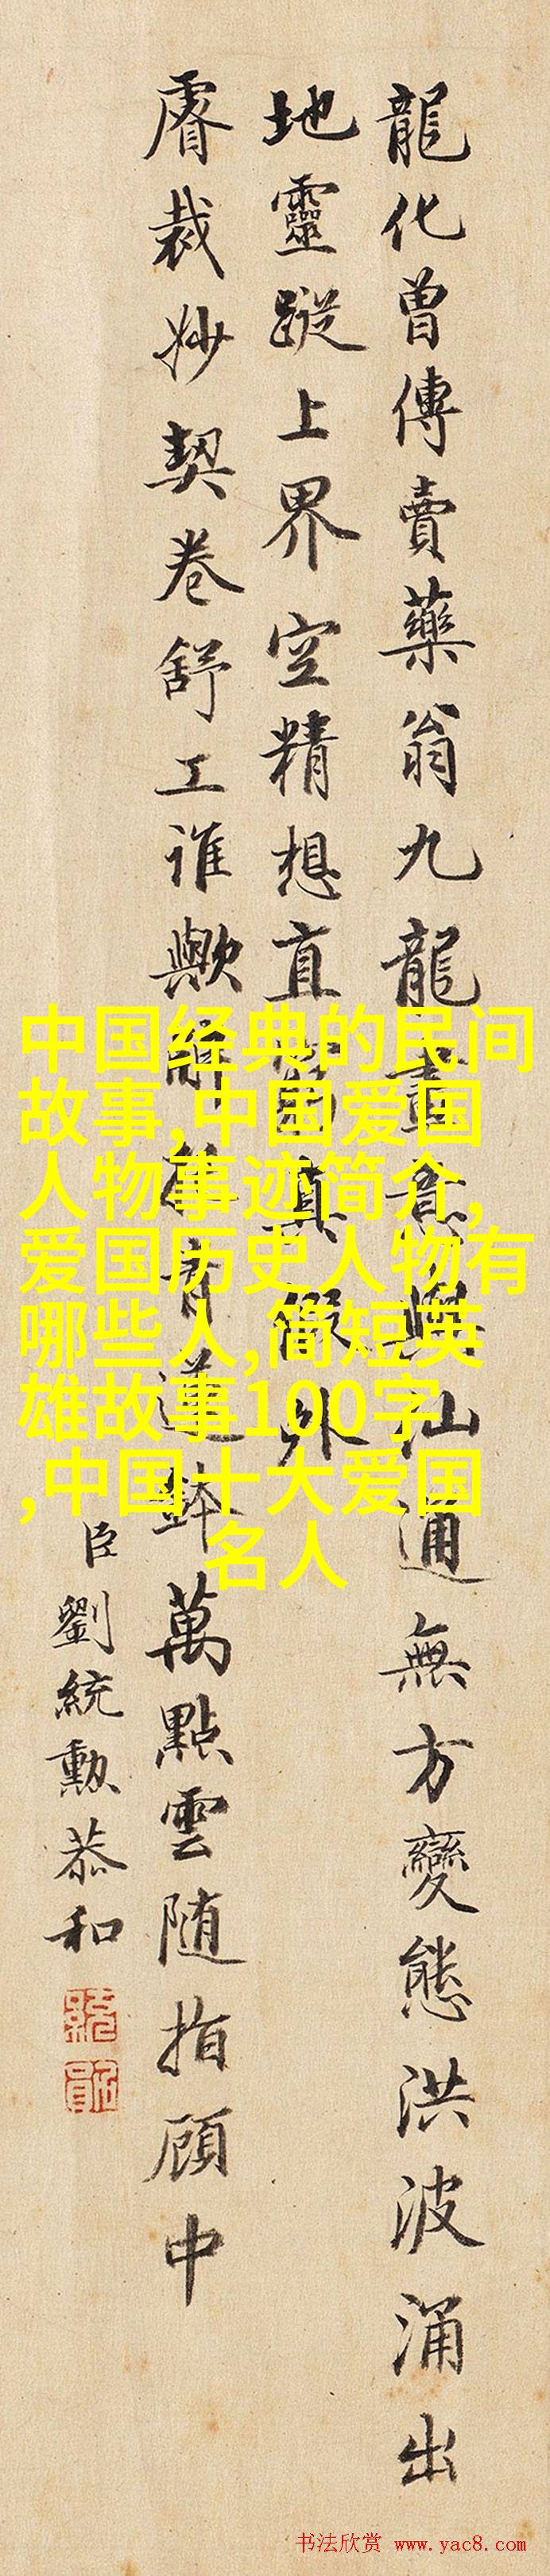 龍化曾傳賣藥翁九龍畫意與仙通無方變態洪波涌出
地靈蹤上界空精想直箇真假外
睿裁妙契卷舒工誰歟解後青蓮鉢萬點雲随指顧中
臣劉統勲恭和
中国经典的民间
故事,中国爱国
人物事迹简介,
爱国历史人物有
哪些人,简短英
雄故事100字
,中国十大爱国
名人
书法欣赏 www.yac8.com